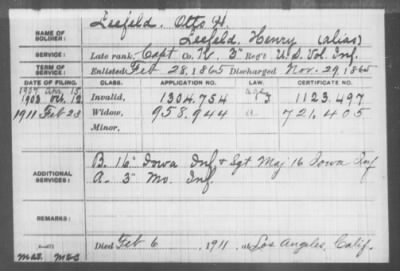 NAME OF SOLDIER: Leefeld, Otto H.
Leefeld, Henry (alias)
SERVICE: Late rank, Capt Co. K, 3" Reg't U.S. Vol. Inf.
TERM OF SERVICE: Enlisted Feb 28, 1865 Discharged Nov. 29, 1865
DATE OF FILING. CLASS. APPLICATION NO. CERTIFICATE NO.
1907 Apr. 15
1903 Oct. 12 Invalid, 1304.784 1123.497
1911 Feb 23 Widow, 958.944 a 721.405
Minor,
ADDITIONAL SERVICES: B. 16" Iowa Inf & Sgt Maj 16 Iowa Inf
A. 3" Mo. Inf.
REMARKS:
Died Feb 6, 1911, at Los Angeles, Calif.